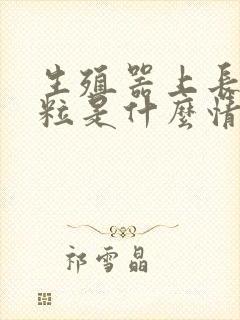 生殖器上長
粒是什麼情
祁雪晶